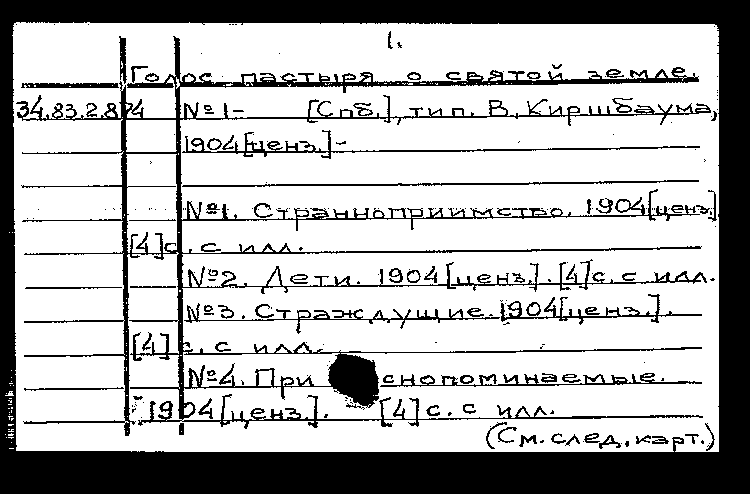 1.
Голос пастыря о святой земле.
34.83.2.874 №1- [Спб.], тип. В. Киршбаума,
1904[ценз.]-
№1. Странноприимство. 1904[ценз].
[4]с. с илл.
№2. Дети. 1904[ценз.]. [4]с. с илл.
№3. Страждущие. 1904[ценз.].
[4] с. с илл.
№4. При снопоминаемые.
1904[ценз.]. [4]с. с илл.
(См. след. карт.)